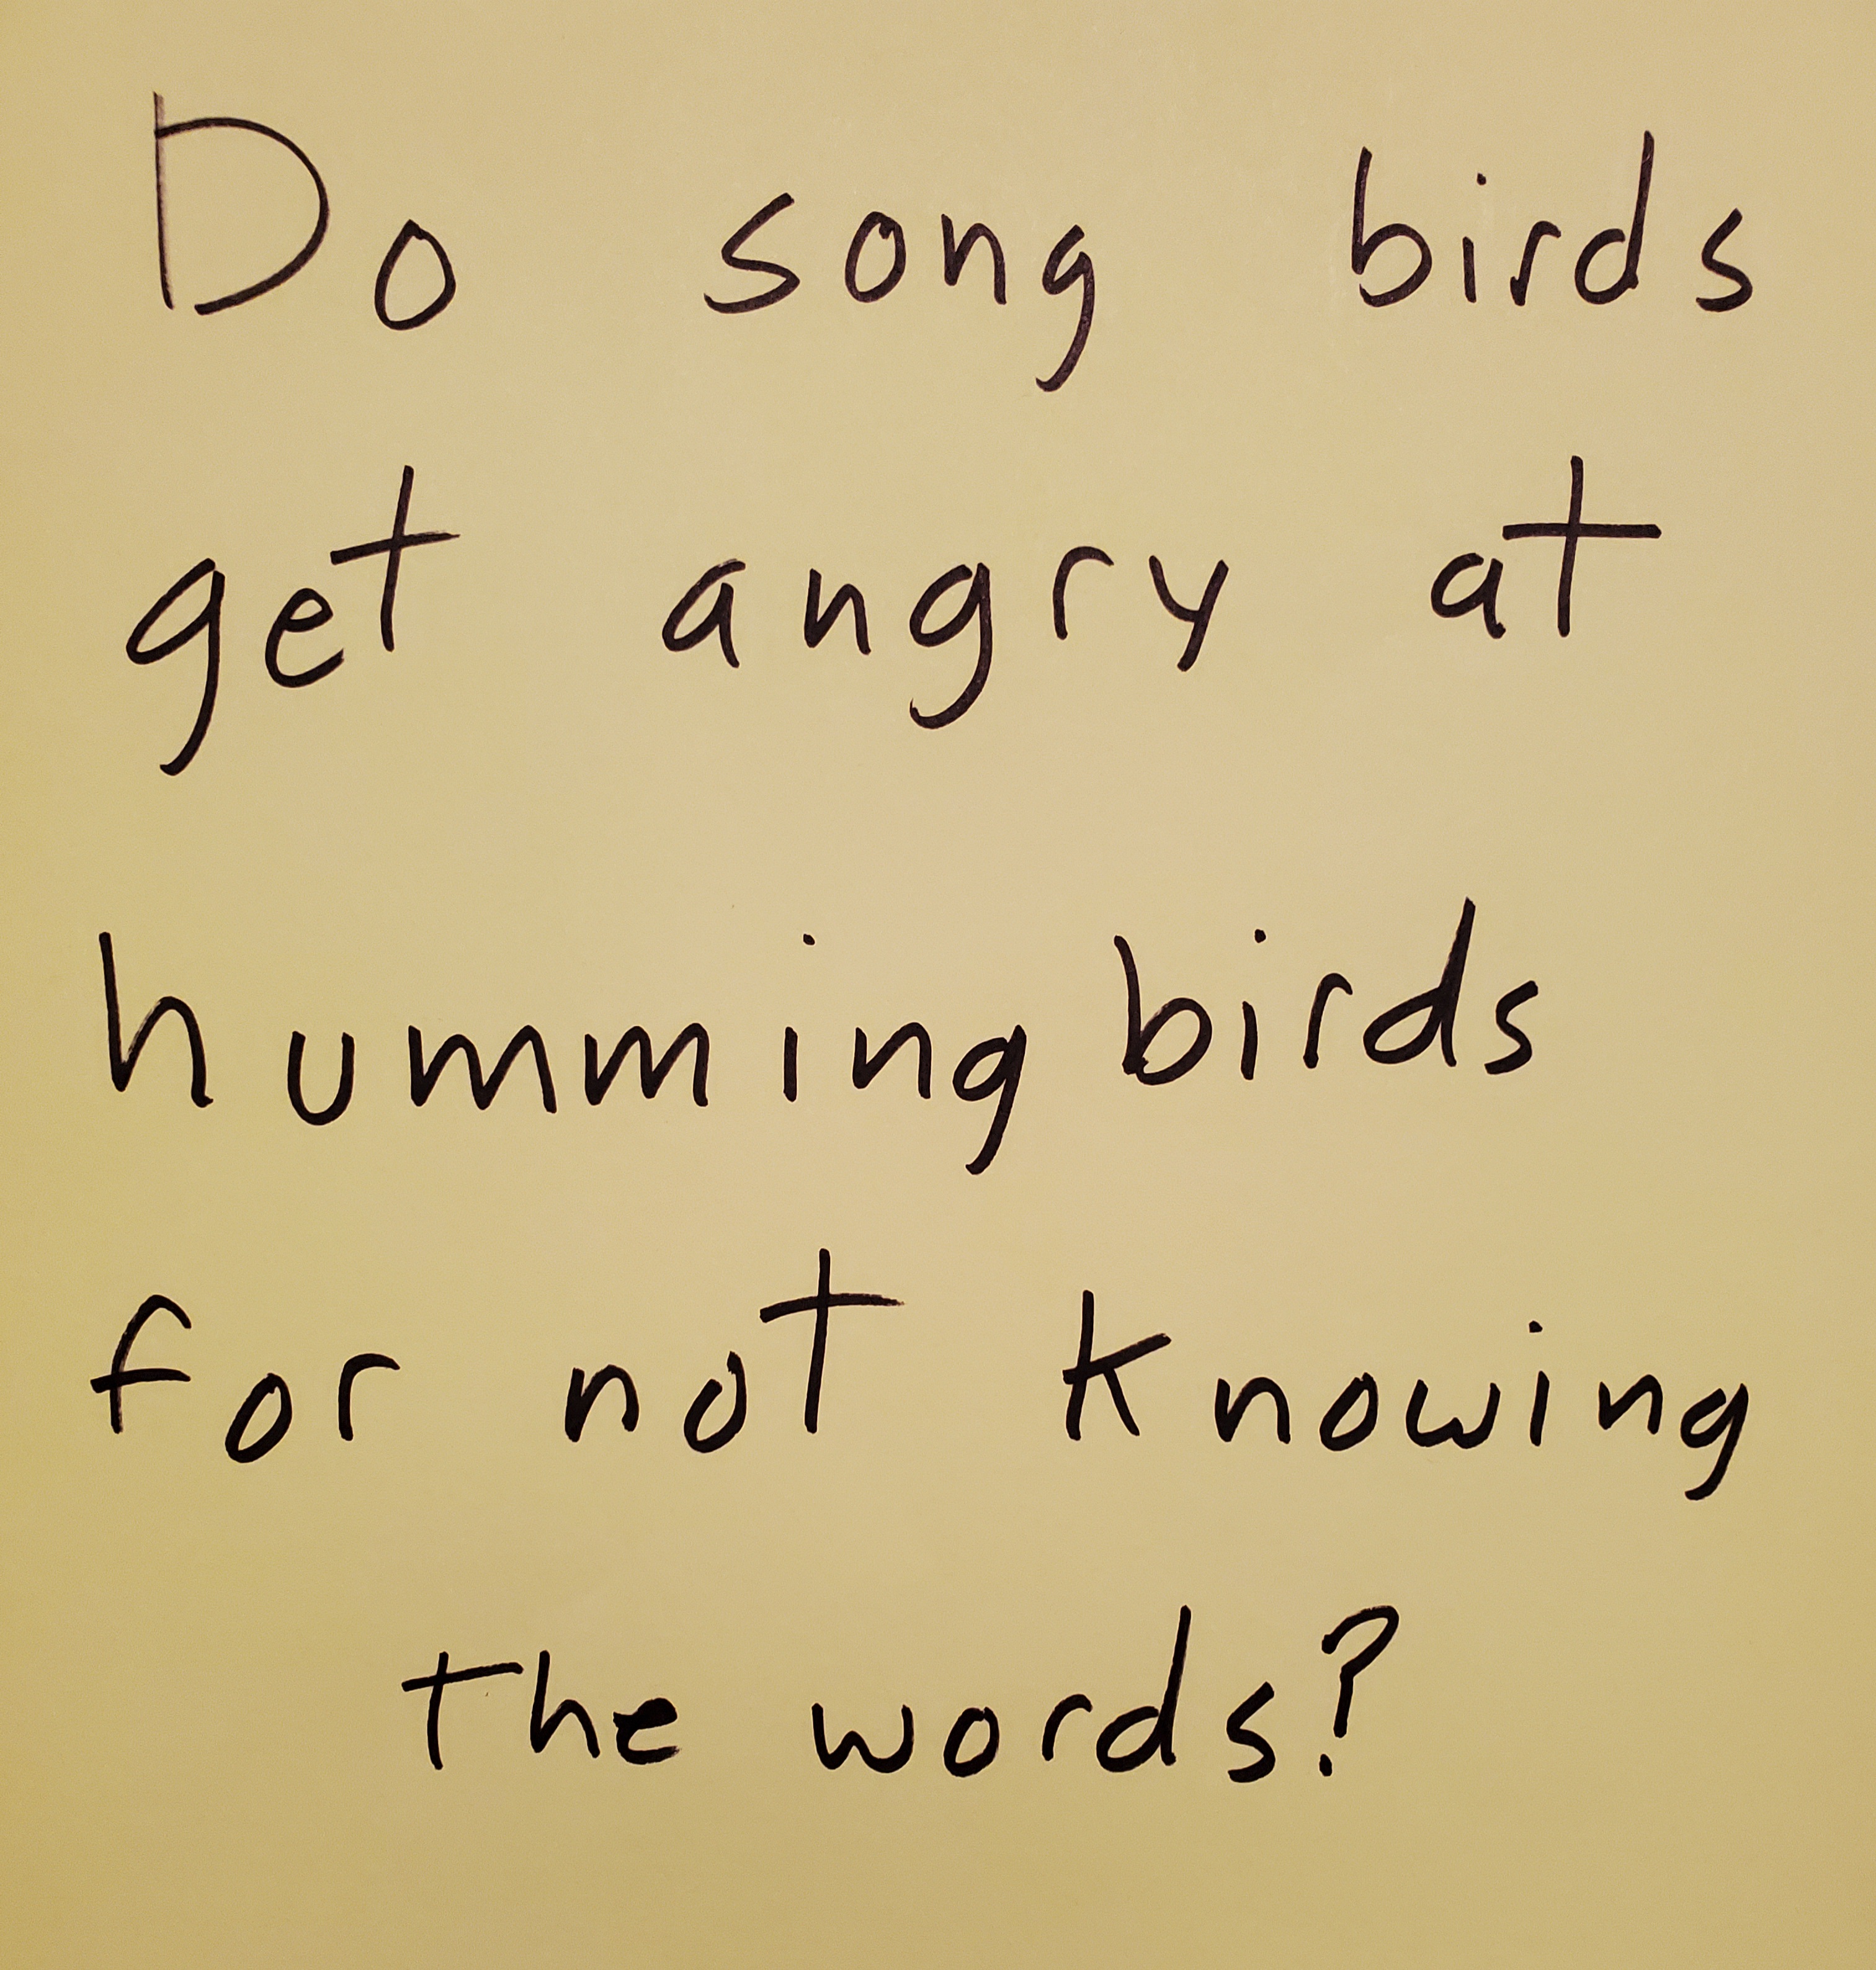 Do song birds
get angry at
hummingbirds
for not knowing
the words?